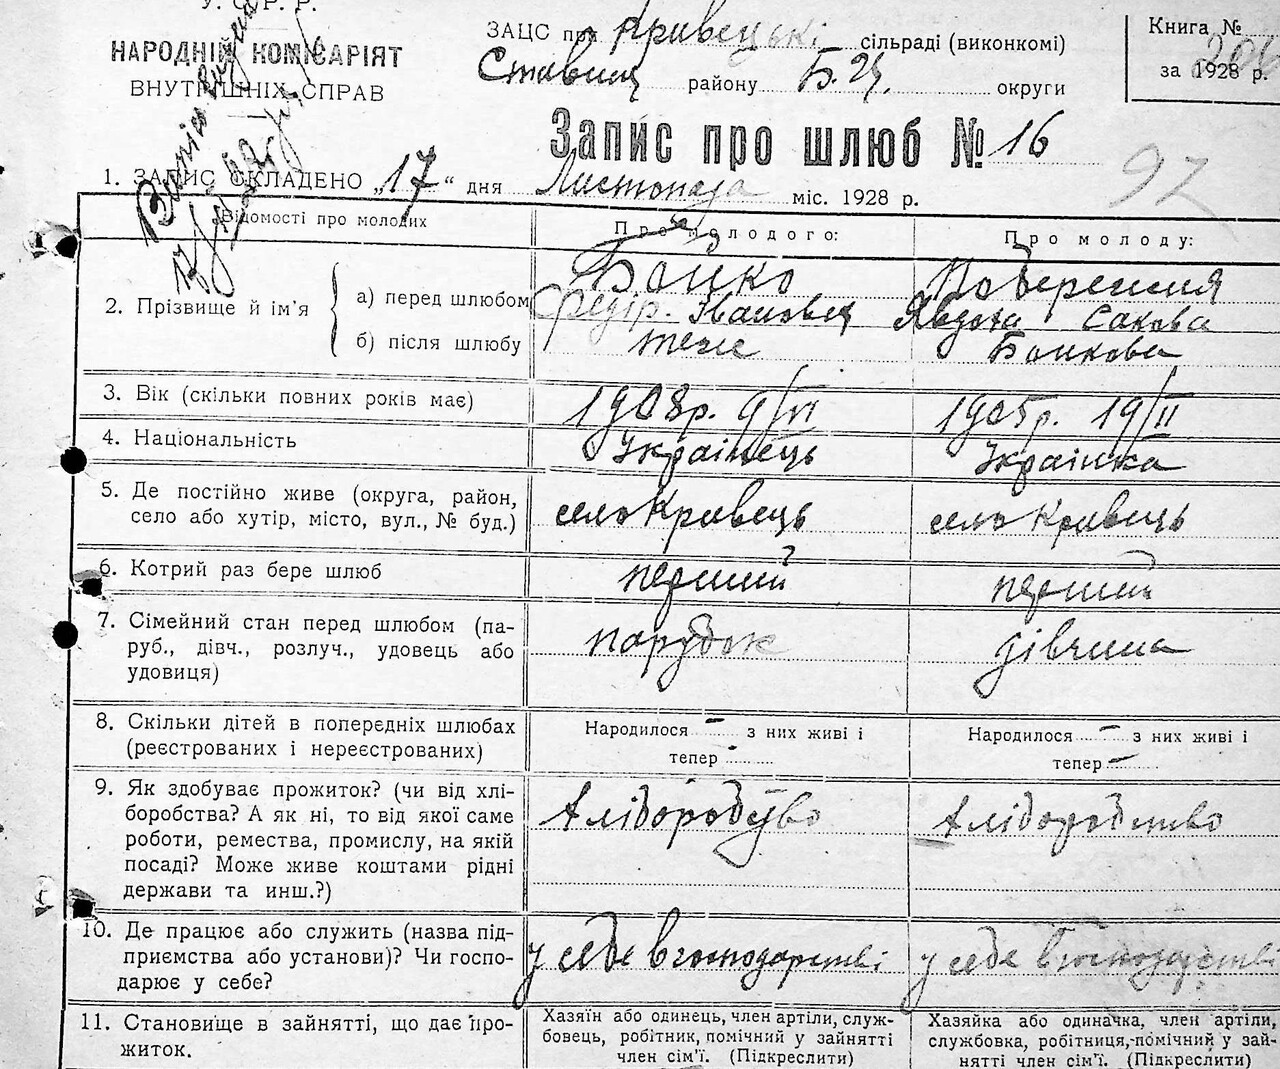 У. С. Р. Р.
НАРОДНІЙ КОМІСАРІЯТ
ВНУТРІШНІХ СПРАВ
ЗАЦС при Кривецькі сільраді (виконкомі)
Ставищ району Б. Ц. округи
Книга №
за 1928 р.
206
Запис про шлюб № 16
92
1. ЗАПИС СКЛАДЕНО „17“ дня Листопада міс. 1928 р.
Відомості про молодих
Про молодого:
Про молоду:
2. Прізвище й ім'я
а) перед шлюбом
Бойко
Федір. Іванович
Явдоха Сакова
б) після шлюбу
теж
Бойкова
3. Вік (скільки повних років має)
1908р. 9/VI
1905р. 19/II
4. Національність
Українець
Українка
5. Де постійно живе (округа, район,
село або хутір, місто, вул., № буд.)
село Кривець
село Кривець
6. Котрий раз бере шлюб
перший
перший
7. Сімейний стан перед шлюбом (па-
руб., дівч., розлуч., удовець або
удовиця)
парубок
дівчина
8. Скільки дітей в попередніх шлюбах
(реєстрованих і нереєстрованих)
Народилося – з них живі і
тепер –
Народилося – з них живі і
тепер –
9. Як здобуває прожиток? (чи від хлі-
боробства? А як ні, то від якої саме
роботи, ремества, промислу, на якій
посаді? Може живе коштами рідні
держави та инш.?)
хліборобство
хліборобство
10. Де працює або служить (назва під-
приємства або установи)? Чи госпо-
дарює у себе?
у себе в господарстві
у себе в господарстві
11. Становище в зайнятті, що дає про-
житок.
Хазяїн або одинець, член артіли, служ-
бовець, робітник, помічний у зайнятті
член сім'ї. (Підкреслити)
Хазяйка або одиначка, член артіли,
службовка, робітниця, помічний у зай-
нятті член сім'ї. (Підкреслити)